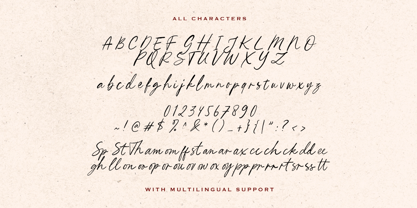 ALL CHARACTERS
A B C D E F G H I J K L M N O
P Q R S T U V W X Y Z
a b c d e f g h i j k l m n o p q r s t u v w x y z
0 1 2 3 4 5 6 7 8 9 0
~ ! @ # $ % ^ & * ( ) _ + { } | " : ? < >
Sp St Th am om ff st an ar ax cc ch ck dd ee
gh ll on oo op or ou ov ow ox oy pp rr ss tt
WITH MULTILINGUAL SUPPORT